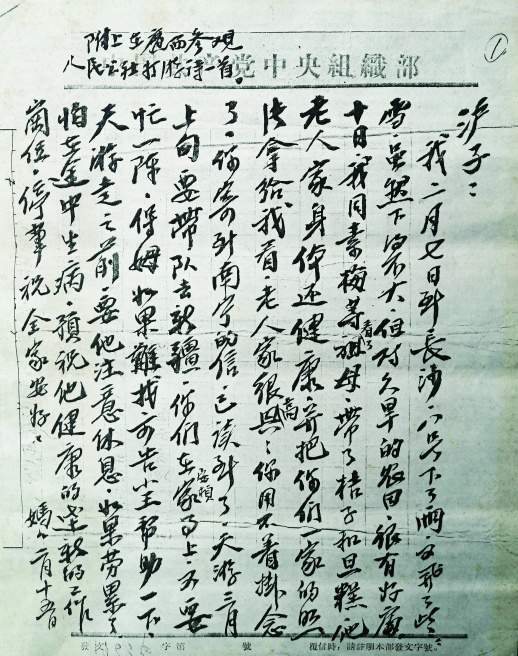 附上在广西参观
人民公社打油诗一首。
党中央組織部
①
沪子：
我二月七日到长沙，六只下了雨，又飞了些
雪，虽然下得不大，但对久旱的农田很有好处
十日我同素梅等看了祖母，带了桔子和旦糕，他
老人家身体还健康，并把你们一家的照
片拿给我看，老人家很高兴，你用不着掛念
了，你寄到南宁的信，已读到了，天游三月
上旬要带队去新疆，你们在家安顿了上，又要
忙一阵，保姆如果难找，可告尘帮助一下，
天游走之前，要他注意休息，如果劳累了
怕在途中生病，预祝他健康的走新的工作
岗位，停笔祝全家安好：
妈妈二月十五日
發文 字第 號 復信時，請註明本部發文字號。